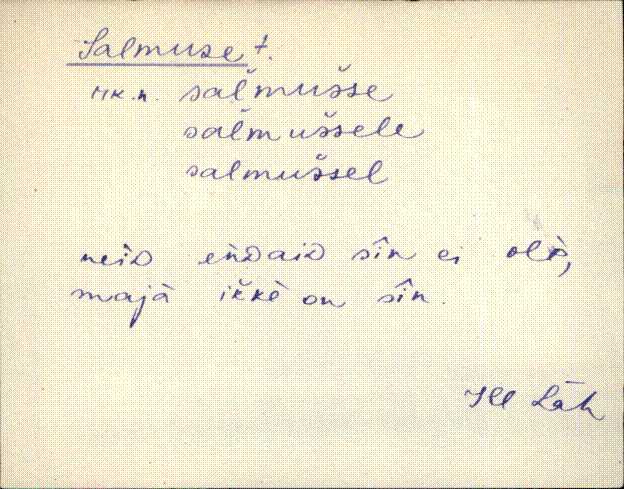 Salmuse t.
MK.n. sal̆mus̆se
sal̆mus̆sele
salmus̆sel
neiD eǹDaiD sîn ei olè,
majà ik̆kè on sîn.